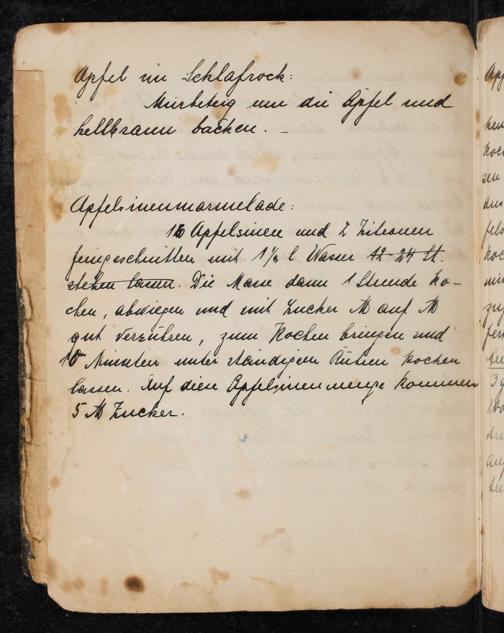 Apfel im Schlafrock:
Mürbteig um die Äpfel und
hellbraun backen. –
Apfelsinenmarmelade:
Apfelsinen und 2 Zitronen
feingeschnitten mit 1½ l Wasser 12-24 St.
stehen lassen. Die Masse dann 1 Stunde ko-
chen, abwiegen und mit Zucker ℔ auf ℔
gut verrühren, zum Kochen bringen und
10 Minuten unter ständigem Rühren kochen
lassen. Auf diese Apfelsinenmenge kommen
5 ℔ Zucker.